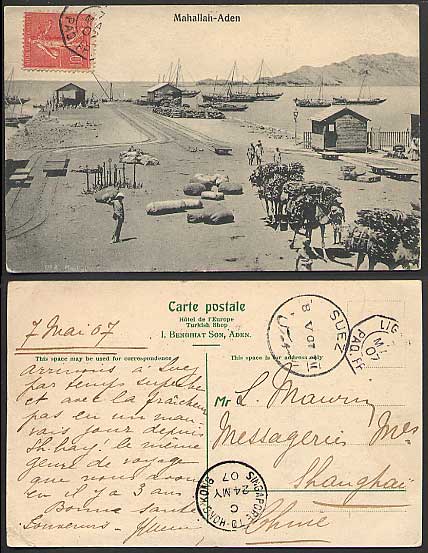 Mahallah-Aden
Carte postale
Hôtel de l'Europe
Turkish Shop
I. BENGHIAT SON, ADEN.
This space may be used for correspondence
This space is for address only
7 Mai 07
arrivons à Suez
par temps superbe
et avec la fraîcheur
pas eu un mau-
vais jour depuis
Sh.haÿ! le même
genre de voyage
que nous avons
eu il y a 3 ans
Bonne santé
Souvenirs
Mr L.
Messageries Mes
Shanghaï
Chine
SUEZ
LIG
PAQ. FR
SINGAPORE TO HONG-KONG
C
24 MY
07